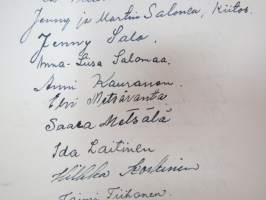 Jenny ja Martin Salonen, Kiitos.
Jenny Salo.
Anna-Liisa Salomaa.
Anni Kauranen.
Elvi Metsävanta
Saara Metsälä
Ida Laitinen
Hilkka Koskinen
Taimi Tiihonen